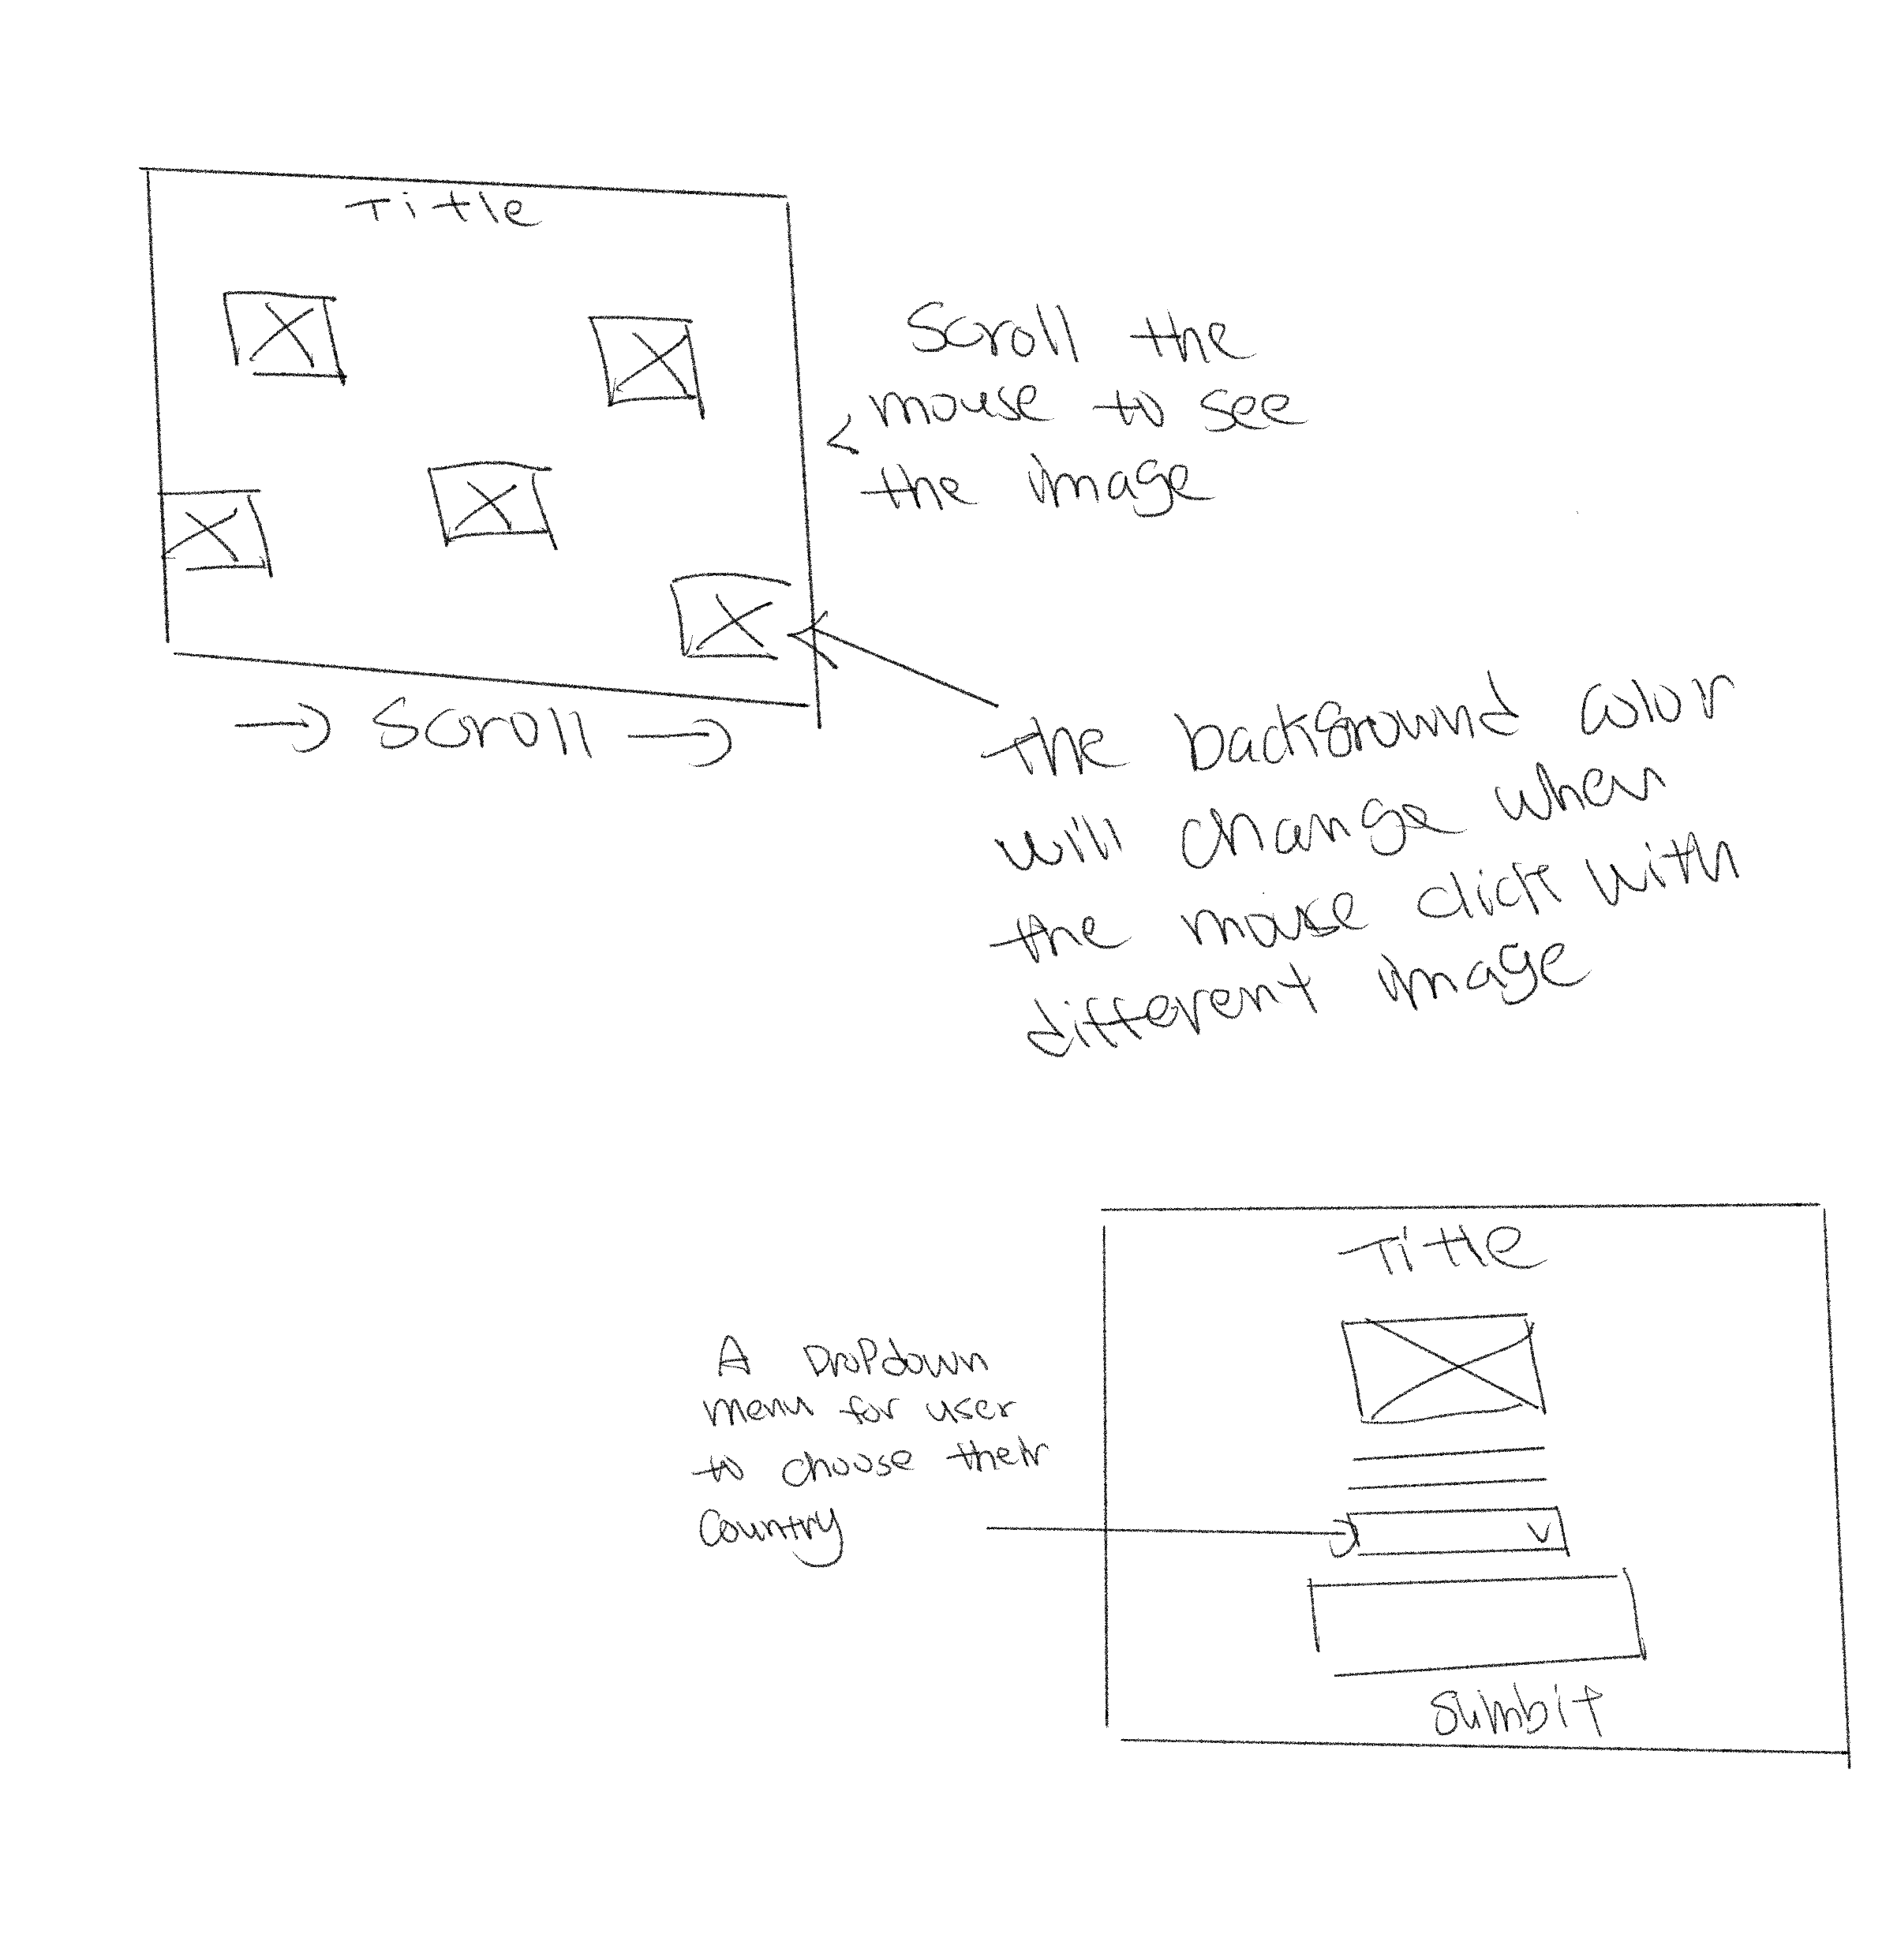 Title
Scroll the
mouse to see
the image
→ Scroll →
The background color
will change when
the mouse click with
different image
Title
A Dropdown
menu for user
to choose their
Country
Sumbit